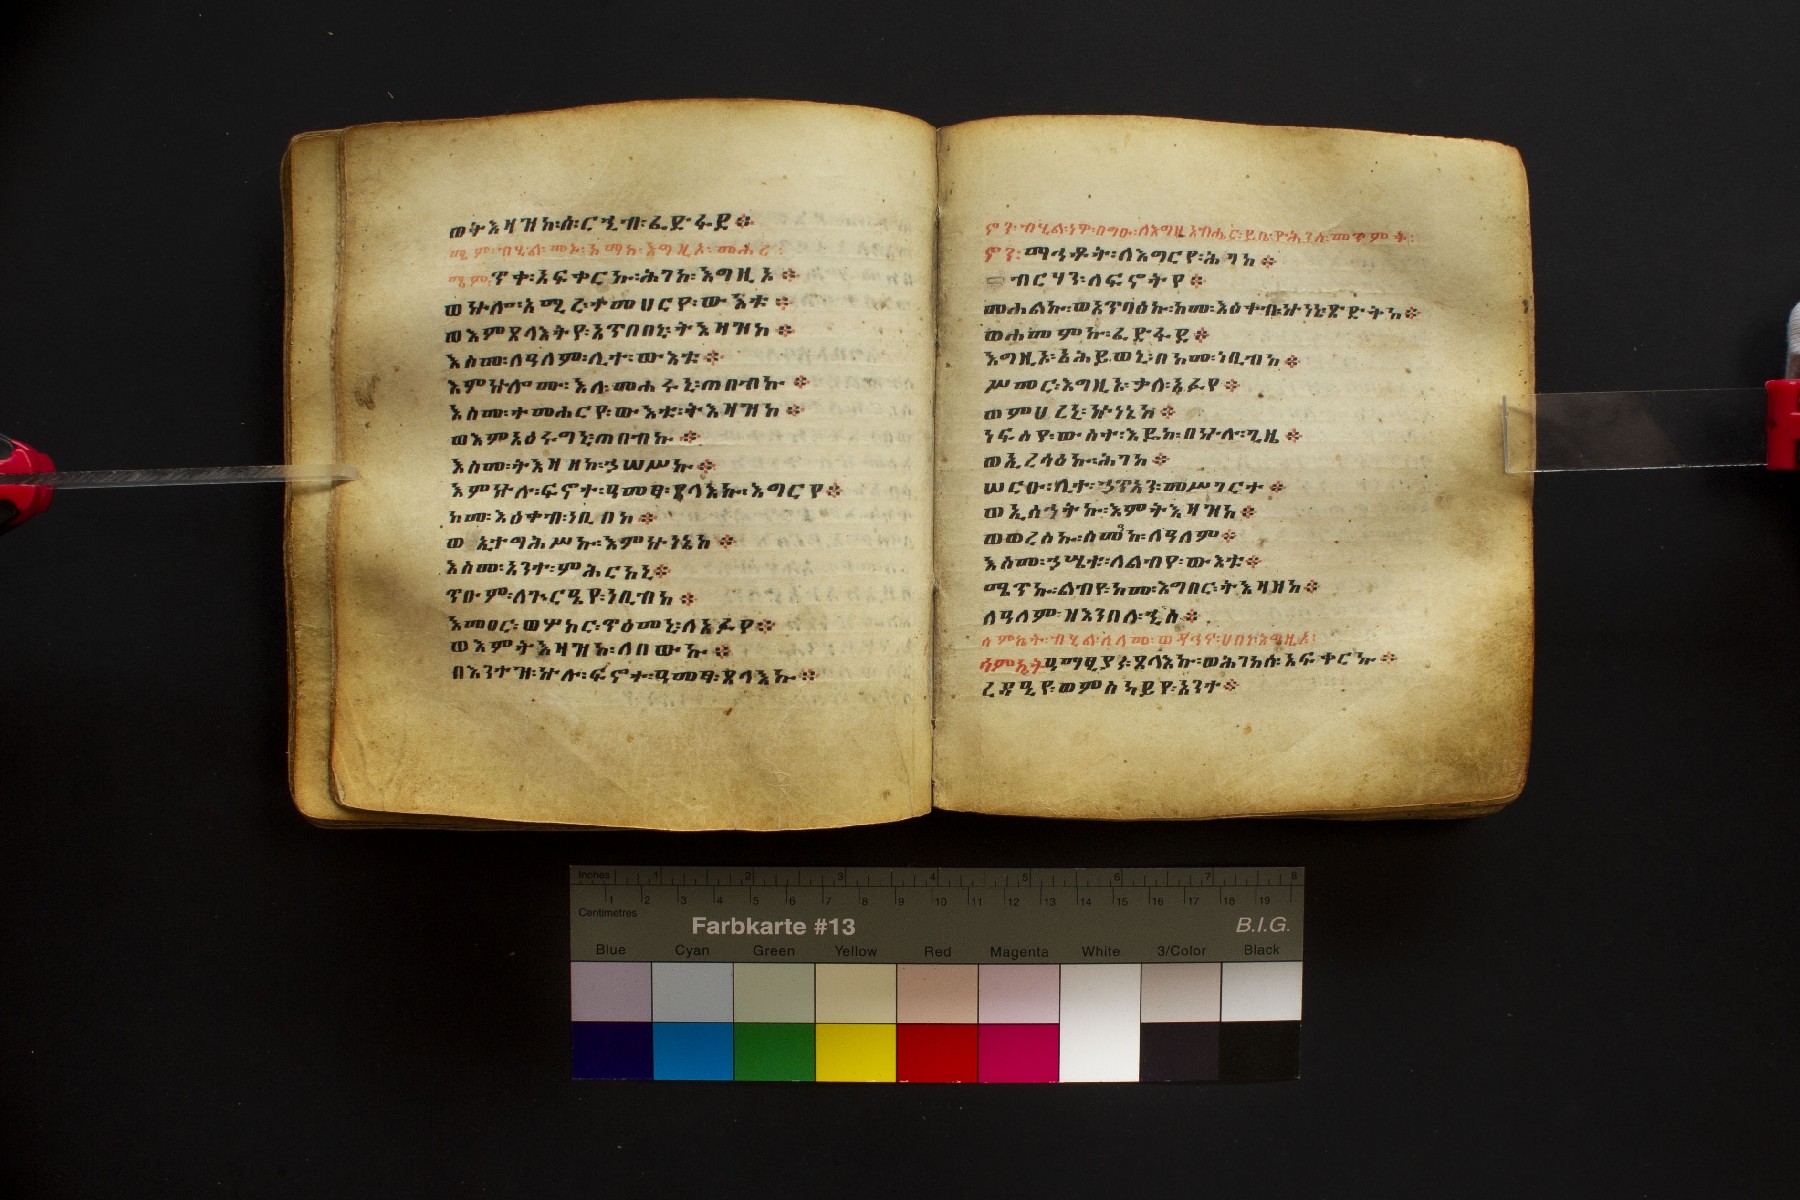 ወትእዛዝከ፡ሰ፡ርኂብ፡ፈድፋደ፨
ሜም፡ብሂል፡መኑ፡ከማከ፡እግዚኦ፡መሐሪ፡
ሜም፡ጥቀ፡አፍቀርኩ፡ሕገከ፡እግዚኦ፨
ወኵሎ፡አሚረ፡ተመሀርየ፡ውእቱ፨
ወእምጸላእትየ፡አጥበበኒ፡ትእዛዝከ፨
እስመ፡ለዓለም፡ሊተ፡ውእቱ፨
እምኵሎሙ፡እለ፡መሐሩኒ፡ጠበብኩ፨
እስመ፡ተመሐርየ፡ውእቱ፡ትእዛዝከ፨
ወእምአዕሩግኒ፡ጠበብኩ፨
እስመ፡ትእዛዘከ፡ኃሠሥኩ፨
እምኵሉ፡ፍኖተ፡ዓመፃ፡ጸላእኩ፡እግርየ፨
ከመ፡እዕቀብ፡ነቢበከ፨
ወኢተግሕሥኩ፡እምኵነኔከ፨
እስመ፡አንተ፡ምሕርከኒ፨
ጥዑም፡ለጕርዔየ፡ነቢብከ፨
እመዐር፡ወሦከር፡ጥዕመኒ፡ለአፉየ፨
ወእምትእዛዝከ፡ለበውኩ፨
በእንተዝ፡ኵሉ፡ፍኖተ፡ዓመፃ፡ጸላእኩ፨
ኖን፡ብሂል፡ነዋ፡በግዑ፡ለእግዚአብሔር፡
ኖን፡ማኅቶት፡ለእግርየ፡ሕግከ፨
ብርሃን፡ለፍኖትየ፨
መሐልኩ፡ወአጥባዕኩ፡ከመ፡እዕቀብ፡ኵነኔ፡ጽድትከ፨
ወሐመምኩ፡ፈድፋደ፨
እግዚኦ፡አሕይወኒ፡በከመ፡ነቢብከ፨
ሥመር፡እግዚኦ፡ቃለ፡አፉየ፨
ወምሀረኒ፡ኵነኔከ፨
ነፍስየ፡ውስተ፡እዴከ፡በኵሉ፡ጊዜ፨
ወኢረሳዕኩ፡ሕገከ፨
ሠርዑ፡ሊተ፡ኃጥአን፡መሥገርተ፨
ወኢሰኀትኩ፡እምትእዛዝከ፨
ወወረስኩ፡ስምዐከ፡ለዓለም፨
እስመ፡ኃሤቱ፡ለልብየ፡ውእቱ፨
ሜጥኩ፡ልብየ፡ከመ፡እግበር፡ትእዛዝከ፨
ለዓለም፡ዝእንበለ፡ኂስ፨
ሳምኬት፡ብሂል፡
ሳምኬት፡ዓማፂያነ፡ጸላእኩ፡ወሕገከሰ፡አፍቀርኩ፨
ረዳዒየ፡ወምስካይየ፡አንተ፨
Inches 1 2 3 4 5 6 7 8
1 2 3 4 5 6 7 8 9 10 11 12 13 14 15 16 17 18 19
Centimetres
Farbkarte #13 B.I.G.
Blue Cyan Green Yellow Red Magenta White 3/Color Black